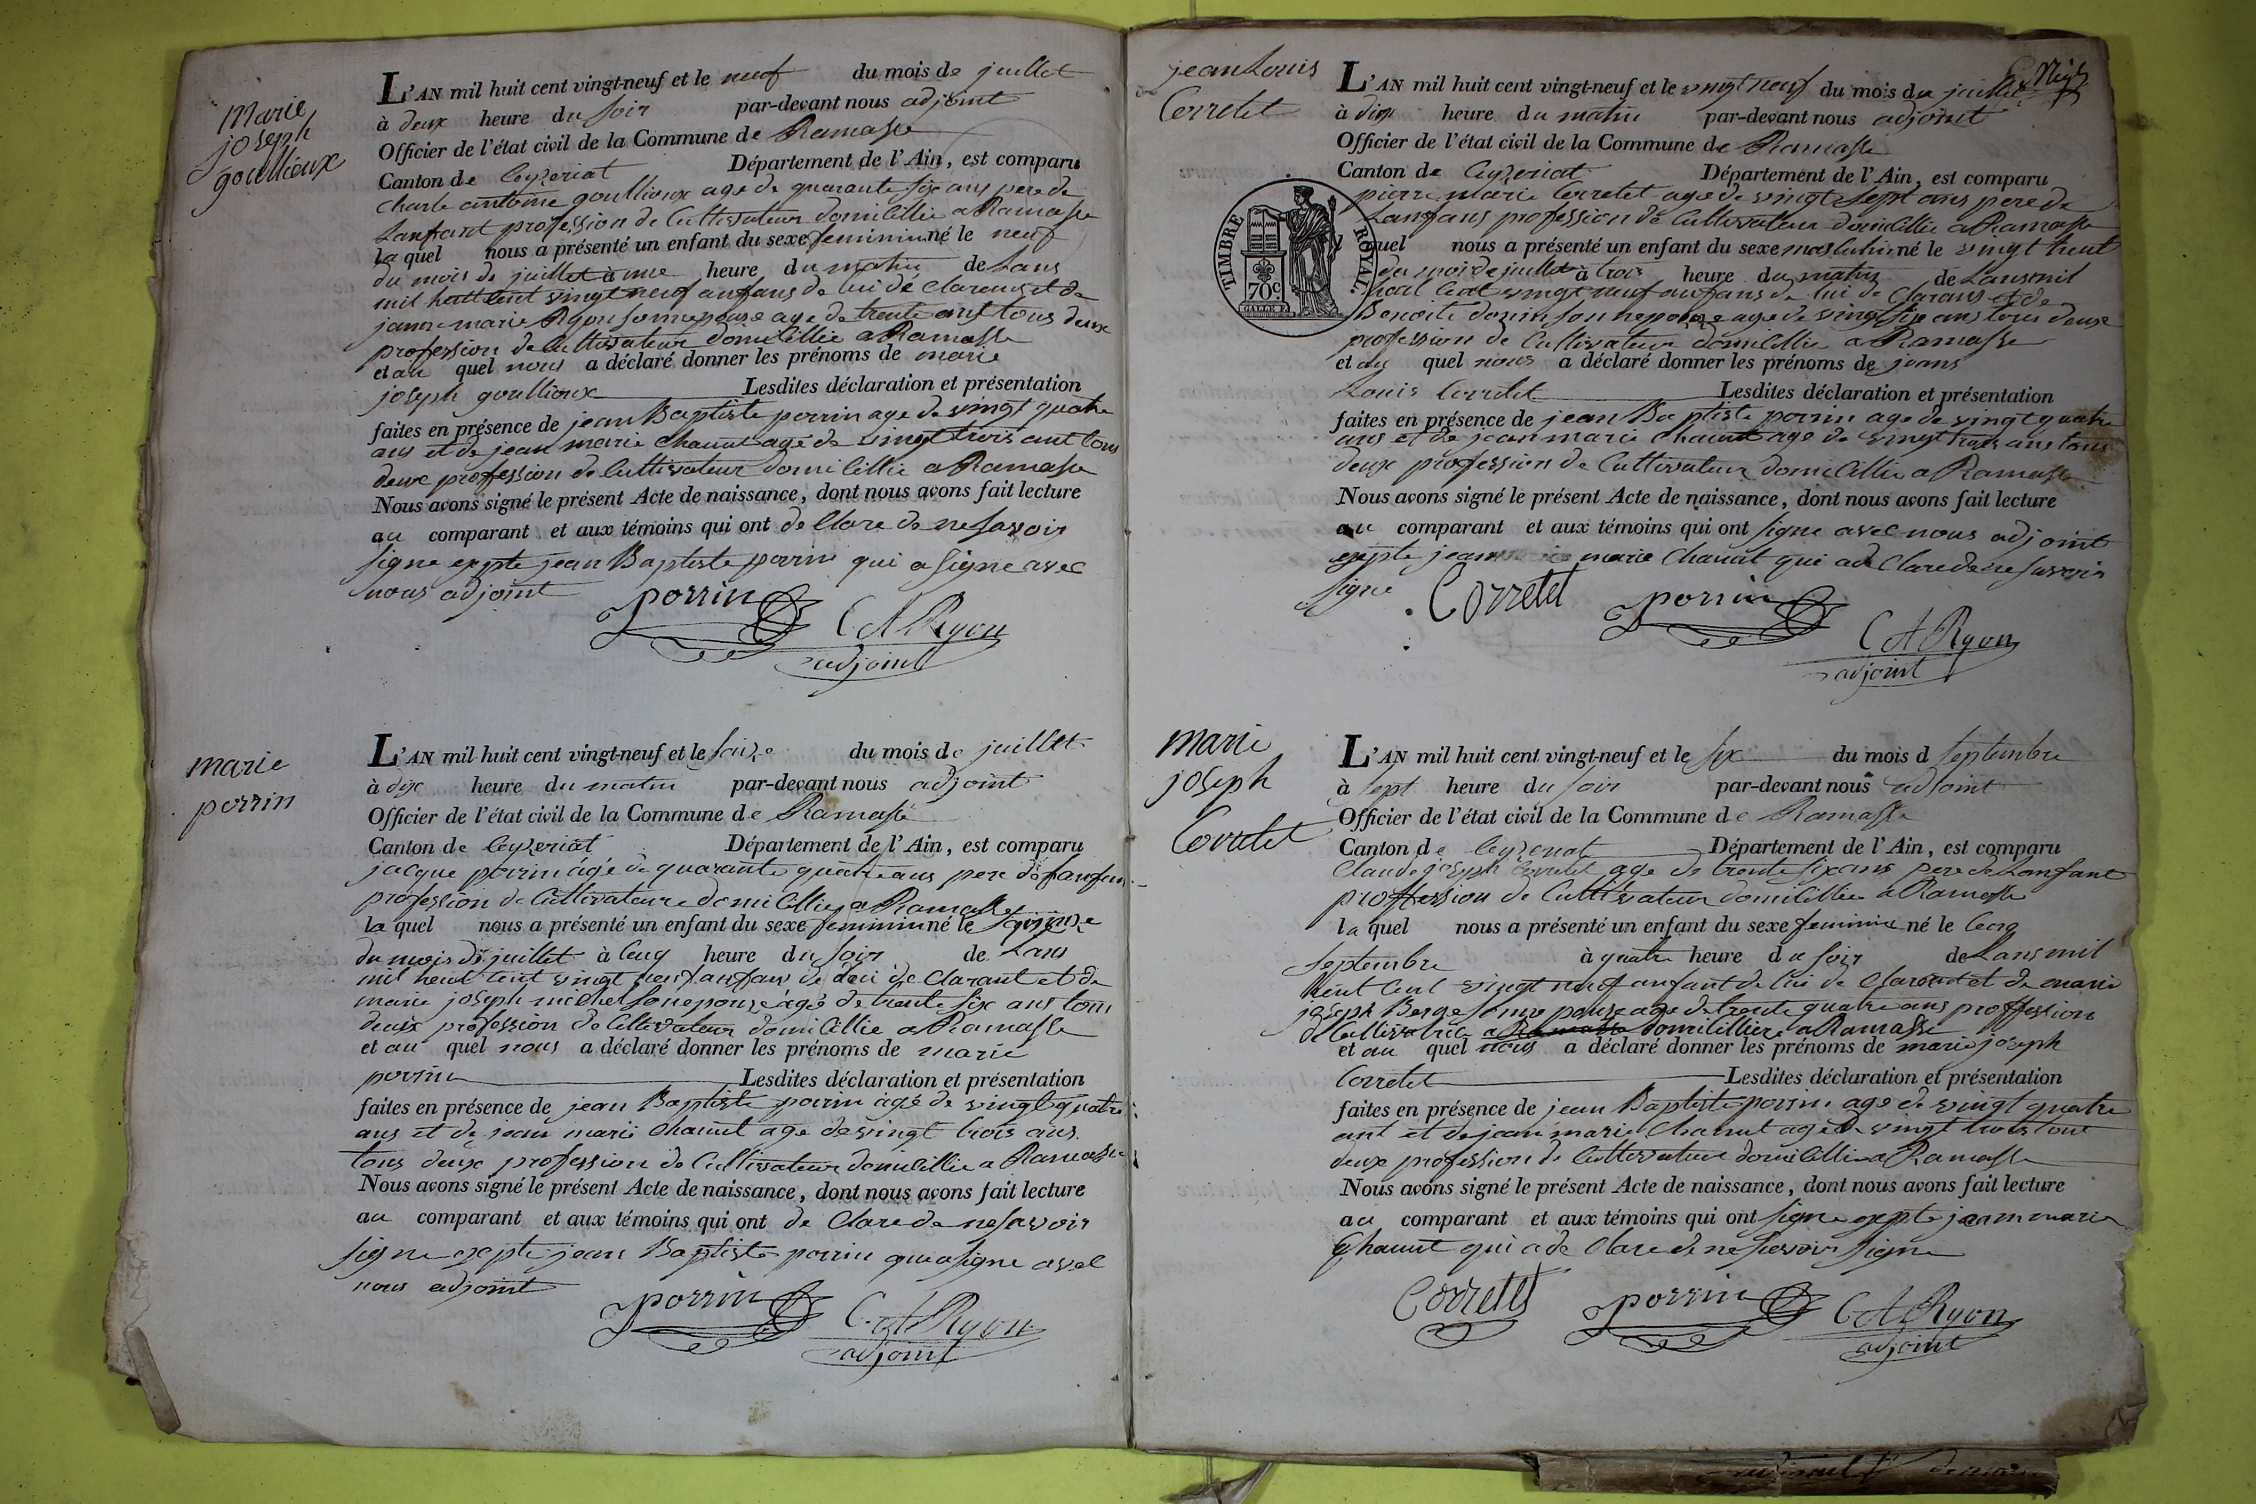 Marie
joseph
goullioux
L'AN mil huit cent vingt-neuf et le neuf du mois de juillet
à deux heure du soir par-devant nous adjoint
Officier de l'état civil de la Commune de Ramasse
Canton de Ceyzeriat Département de l'Ain, est comparu
Charle antoine goullioux age de quarante six ans pere de
Lanfant profession de Cultivateur domicillie a Ramasse
la quel nous a présenté un enfant du sexe feminin né le neuf
du mois de juillet à une heure du matin de Lans
mil huit cent vingt neuf anfans de lui de Clarent et de
janne marie Ryon sonnepouse age de trente ans tous deux
profession de Cultivateur domicillie a Ramasse
et au quel nous a déclaré donner les prénoms de marie
joseph goullioux Lesdites déclaration et présentation
faites en présence de jean Baptiste porrin age de vingt quatre
ans et de jean marie Chanut agé de vingt trois ant tous
deux profession de Cultivateur domicillie a Ramasse
Nous avons signé le présent Acte de naissance, dont nous avons fait lecture
au comparant et aux témoins qui ont de Clare de ne savoir
signe exepte jean Baptiste porrin qui a signe avec
nous adjoint
porrin
C A Ryon
adjoint
marie
porrin
L'AN mil huit cent vingt-neuf et le saize du mois de juillet
à dix heure du matin par-devant nous adjoint
Officier de l'état civil de la Commune de Ramasse
Canton de Ceyzeriat Département de l'Ain, est comparu
jacque porrin âgé de quarante quatre ans pere de
profession de Cultivateur domicillie a Ramasse
la quel nous a présenté un enfant du sexe feminin né le
du mois de juillet à Cenq heure du soir de Lans
mil heut cent vingt neuf anfans de lui de Clarant et de
marie joseph michel sonepouse âgé de trente six ans tous
deux profession de Cultivateur domicillie a Ramasse
et au quel nous a déclaré donner les prénoms de marie
porrin Lesdites déclaration et présentation
faites en présence de jean Baptiste porrin âgé de vingt quatre
ans et de jean marie Chanut age de vingt trois ans
tous deux profession de Cultivateur domicillie a Ramasse
Nous avons signé le présent Acte de naissance, dont nous avons fait lecture
au comparant et aux témoins qui ont de Clare de ne savoir
signe exepte jean Baptiste porrin qui a signe avec
nous adjoint
porrin
C. A Ryon
adjoint
jean Louis
Corretet
TIMBRE ROYAL.
70c
L'AN mil huit cent vingt-neuf et le vingt neuf du mois du juillet
à dix heure du matin par-devant nous adjoint
Officier de l'état civil de la Commune de Ramasse
Canton de Ceyzeriat Département de l'Ain, est comparu
pierre marie Corretet agé de vingt sept ans pere de
Lanfans profession de Cultivateur domicillie a Ramasse
quel nous a présenté un enfant du sexe maslulin né le vingt heut
du mois de juillet à trois heure du matin de Lansmil
heut Cent vingt neuf anfans de lui de Clarans et de
Benoite donin sonnepouse age de vingt six ans tous deux
profession de Cultivateur domicillie a Ramasse
et au quel nous a déclaré donner les prénoms de jeans
Louis Corretet Lesdites déclaration et présentation
faites en présence de jean Baptiste porrin age de vingt quatre
ans et de jean marie Chanut age de vingt trois ans tous
deux profession de Cultivateur domicillie a Ramasse
Nous avons signé le présent Acte de naissance, dont nous avons fait lecture
au comparant et aux témoins qui ont signe avec nous adjoint
exepte jean marie Chanut qui a de Clare de ne savoir
signe
Corretet
porrin
C A Ryon
adjoint
marie
joseph
Corretet
L'AN mil huit cent vingt-neuf et le six du mois d septembre
à sept heure du soir par-devant nous adjoint
Officier de l'état civil de la Commune de Ramasse
Canton de Ceyzeriat Département de l'Ain, est comparu
Claude joseph Corretet age de trente six ans pere de Lanfant
proffession de Cultivateur domicillie a Ramasse
la quel nous a présenté un enfant du sexe feminin né le Cenq
septembre à quatre heure du soir de Lans mil
heut Cent vingt neuf anfant de lui de Clarant et de marie
joseph Berge sonne pouse age de trente quatre ans proffession
de Cultivatrice a Ramasse domicilliee a Ramasse
et au quel nous a déclaré donner les prénoms de marie joseph
Corretet Lesdites déclaration et présentation
faites en présence de jean Baptiste porrin age de vingt quatre
ant et de jean marie Chanut agé de vingt trois tous
deux profession de Cultivateur domicillie a Ramasse
Nous avons signé le présent Acte de naissance, dont nous avons fait lecture
au comparant et aux témoins qui ont signe exepte jean marie
Chanut qui a de Clare de ne savoir signe
Corretet
porrin
C A Ryon
adjoint